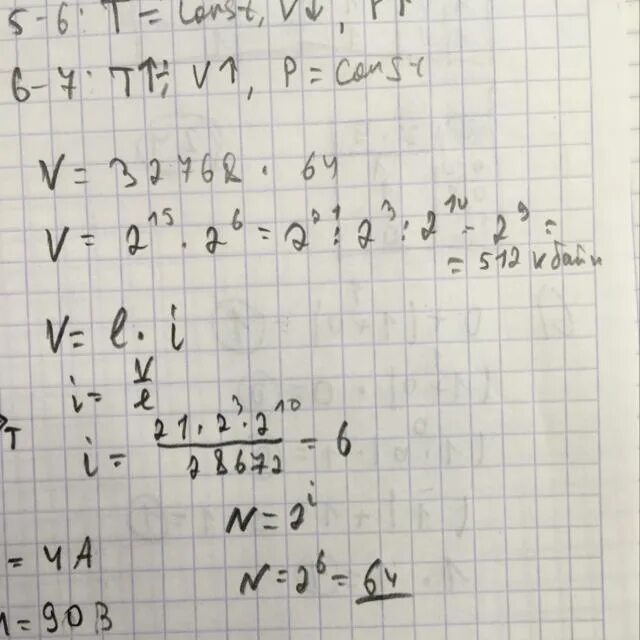 5-6: T = const, V↓, P↑
6-7: T↑; V↑, P = const
V = 32768 · 64
V = 2¹⁵ · 2⁶ = 2²¹ : 2³ : 2¹⁰ = 2⁸ =
= 512 кбайт
V = l · i
i = V/l
T
i = 21 · 2³ · 2¹⁰ / 28672 = 6
N = 2ⁱ
= 4A
N = 2⁶ = 64
= 90 В